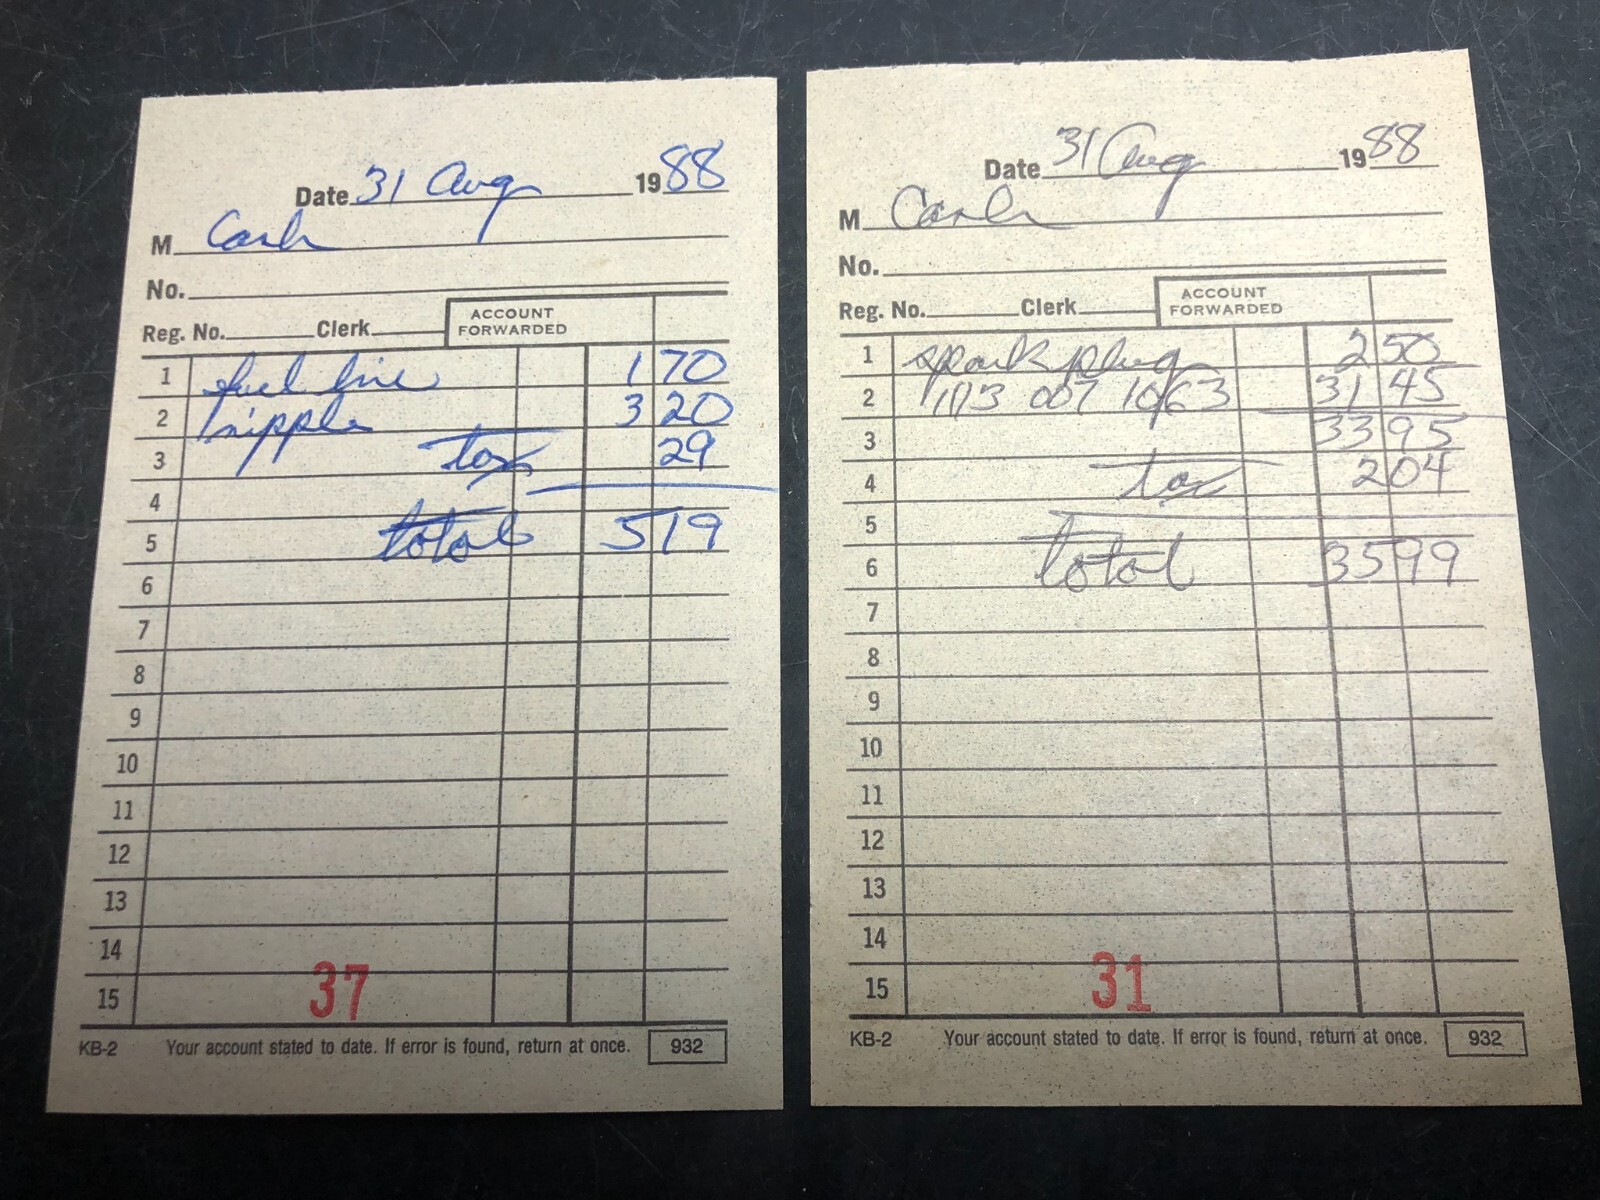 Date 31 Aug 1988
M Cash
No.
Reg. No. Clerk ACCOUNT FORWARDED
1 fuel line 1 70
2 nipple 3 20
3 tax 29
4
5 total 5 19
6
7
8
9
10
11
12
13
14
37
15
KB-2 Your account stated to date. If error is found, return at once. 932
Date 31 Aug 1988
M Cash
No.
Reg. No. Clerk ACCOUNT FORWARDED
1 spark plug 2 50
2 1113 007 1063 31 45
3 33 95
4 tax 2 04
5
6 total 35 99
7
8
9
10
11
12
13
14
31
15
KB-2 Your account stated to date. If error is found, return at once. 932